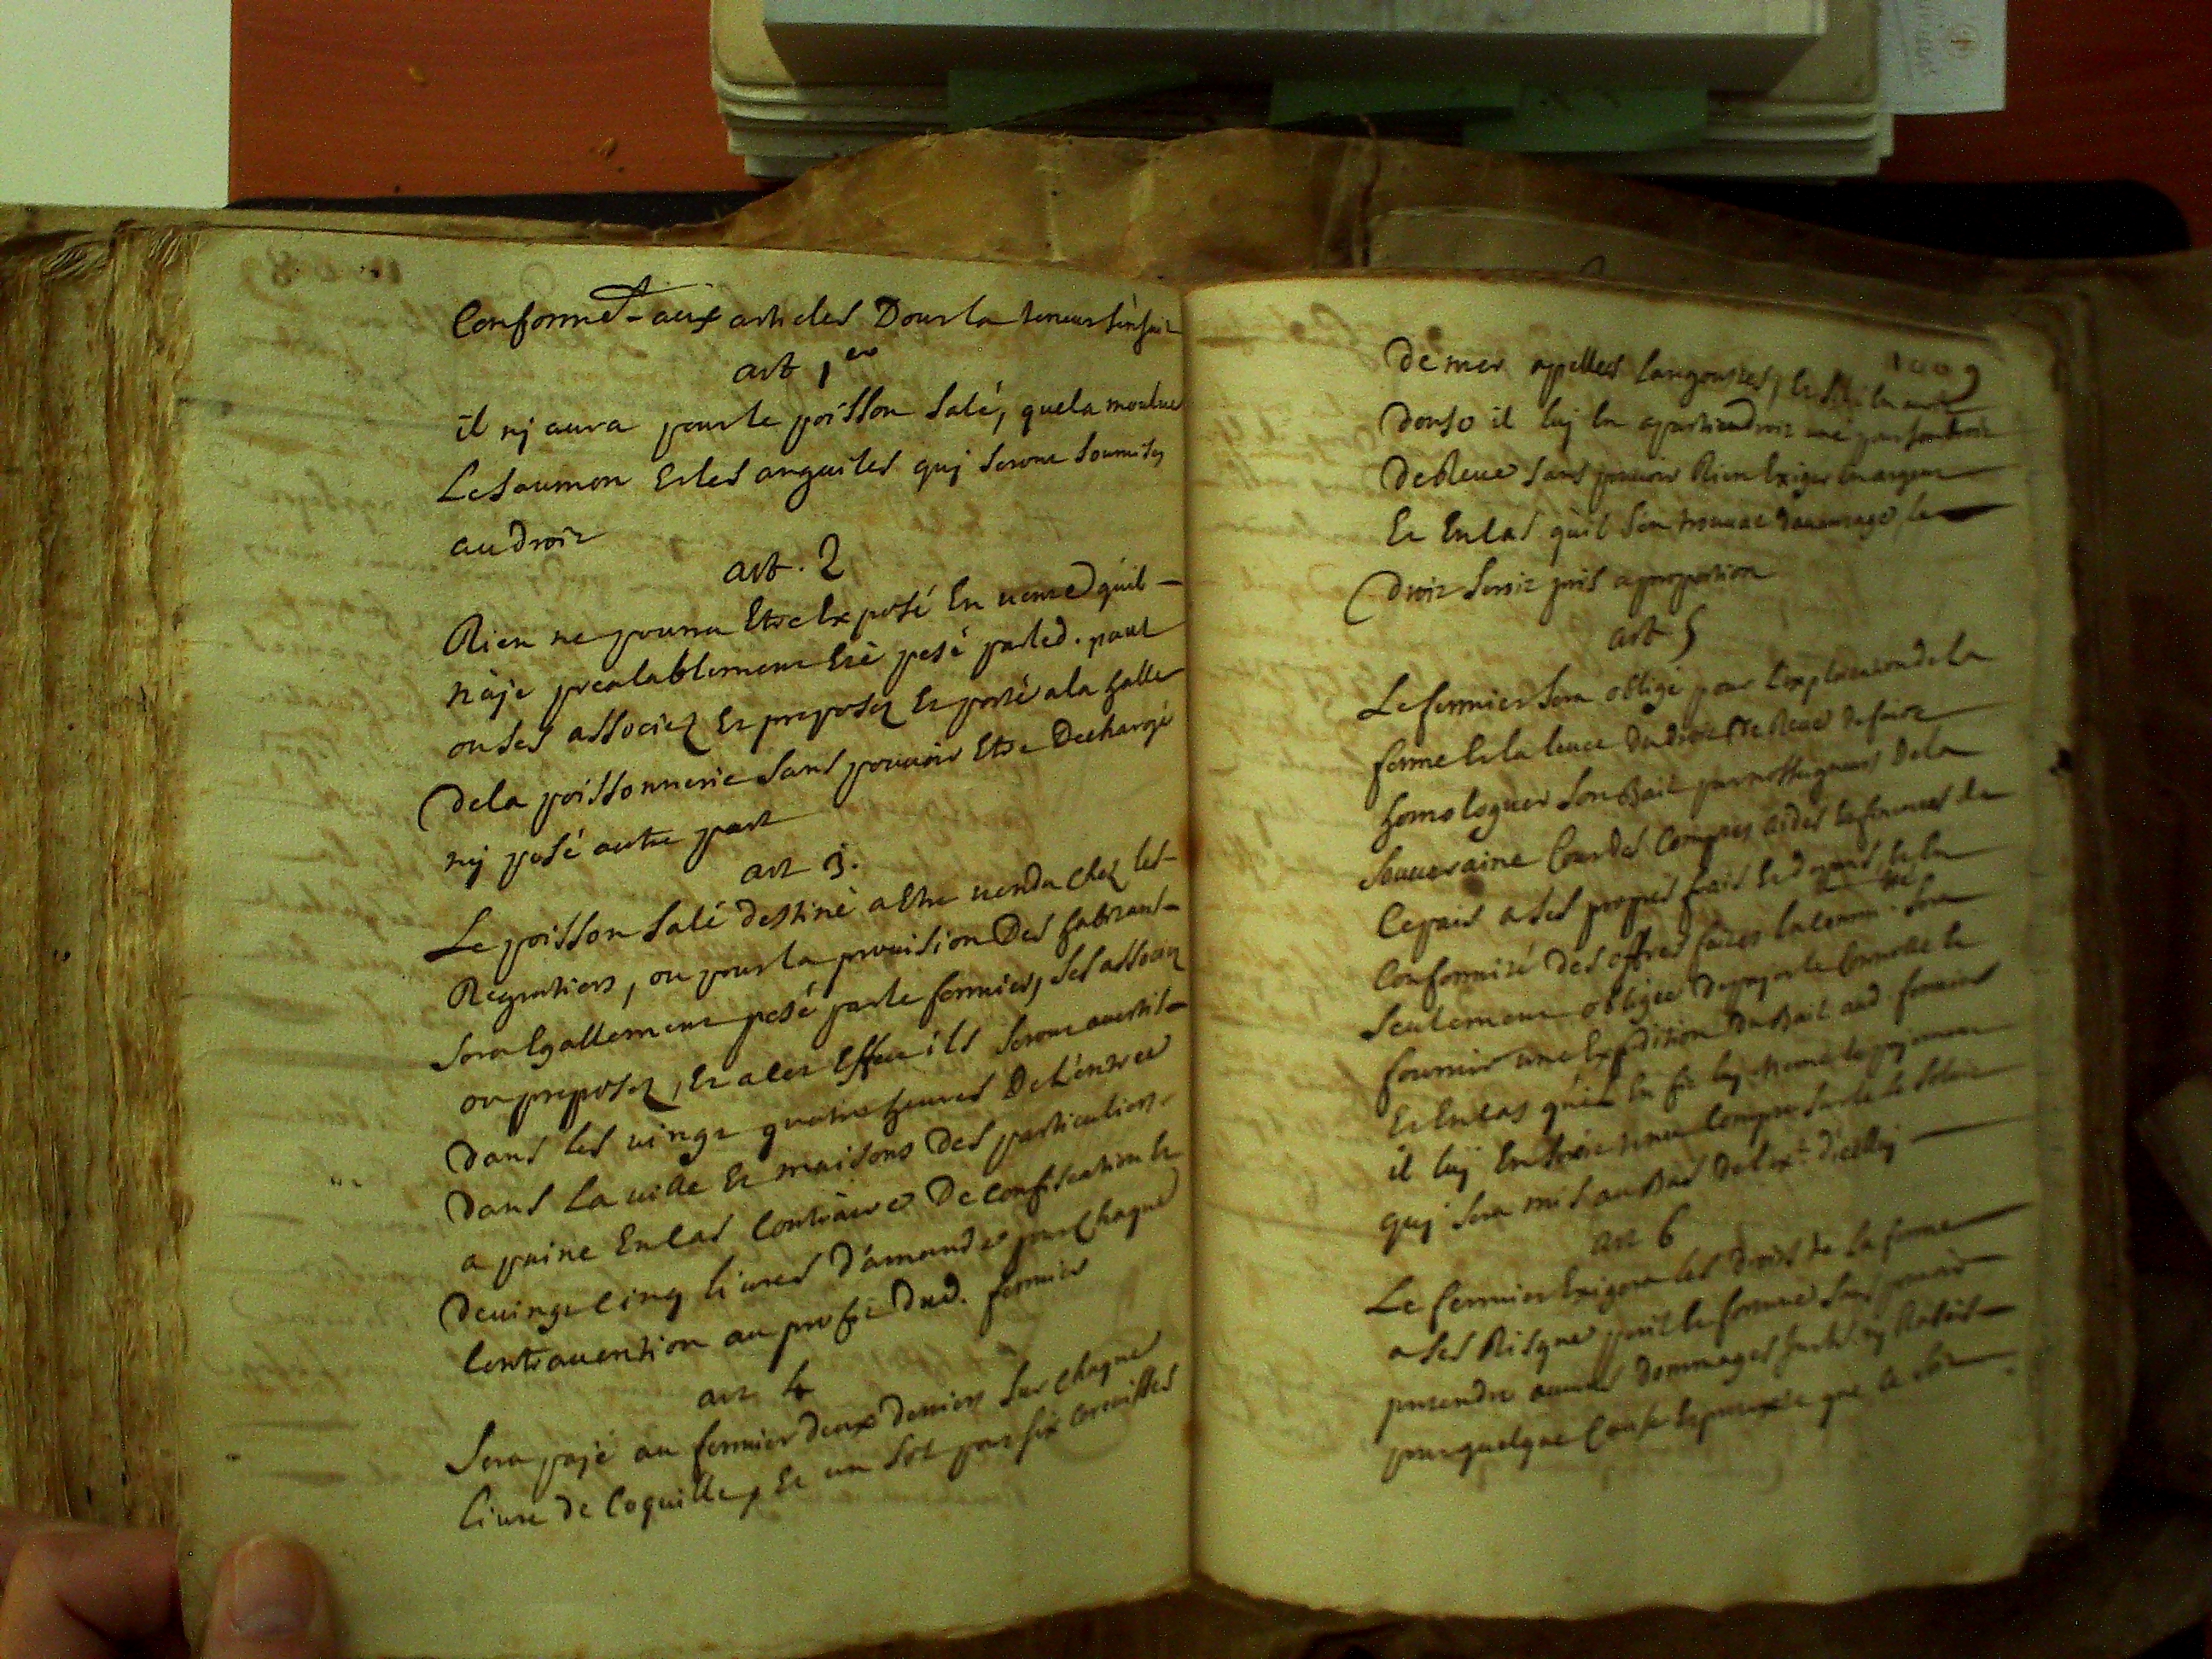 Conformet aux articles Dont la teneur sensuit
art 1er
il nj aura pour le poisson salé, que la moulue
Le saumon Et les anguiles quj seront soumises
au droit
art. 2
Rien ne pourra Etre Exposé En vente qu'il
n'aje prealablement Eté pesé par led. paul
ou ses associez Et preposez Et porté a la halle
De la poissonnerie sans pouvoir Etre Dechargé
nj posé autre part
art 3.
Le poisson salé destiné a Etre vendu chez les
Regratiers, ou pour la provision Des habitants
sera Egallement pesé par le fermier, ses associez
ou preposez, Et a cet Effect ils seront avertits
Dans les vingt quatre heures De L'entrée
Dans La ville Et maisons Des particuliers
a paine En cas Contraire De confiscation Et
De vingt cinq livres D'amande pour chaque
Contravention au profit Dud. fermier
art 4
Sera pajé au fermier deux deniers sur chaque
livre de Coquille, Et un sol pour six Escrevisses
1009
De mer apellees Langoustes, Et s'il En
il luj En apartiendroit une pour son droit
De Reve sans pouvoir Rien Exiger En argent
Et En cas qu'il s'en trouvat davantage, Le
Droit seroit pris a proportion
art 5
Le fermier sera obligé pour L'exploitation de la
ferme Et la levee Du droit De Reve De faire
homologuer son Bail par nosseigneurs De la
souveraine Cour des Comptes aides Et finances de
Ce pais a ses propres frais Et depens, Et En
Conformité Des offres faites La comm.té sera
seulement obligée De le
fournir une Expedition Du Bail aud. fermier
Et En cas qu'il En fit luj meme Le pajement
il luj En seroit tenu Compte sur le
quj sera mis au Bas De l'ext. d'icelluj
art 6
Le fermier Exigera les Droits de La ferme
a ses Risques peril Et fortune sans pouvoir
pretendre aucuns Dommages nj Rabais
pour quelque Cause Et pretexte que ce soit